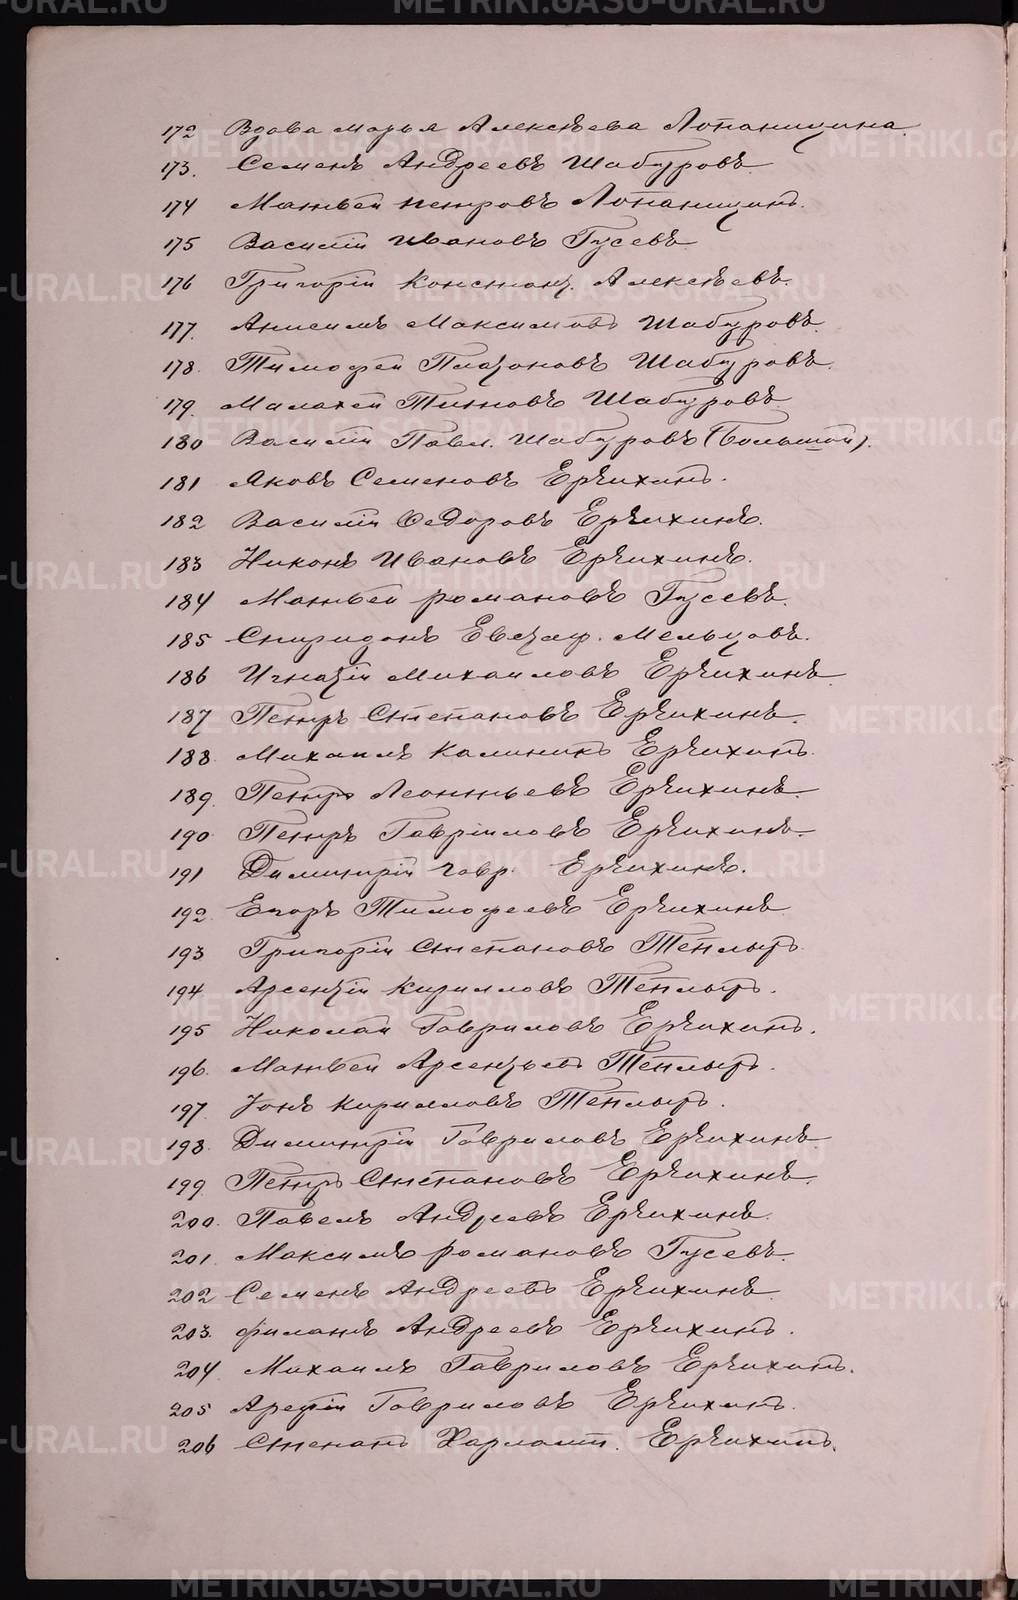 METRIKI.GASO-URAL.RU
172 Вдова Марья Алексѣева Лопаницина.
173. Семенъ Андреевъ Шабуровъ
174 Матвѣй Петровъ Лопаницинъ.
175 Василій Ивановъ Гусевъ
176 Григорій Констант. Алексѣевъ.
177. Анисимъ Максимовъ Шабуровъ.
178. Тимофей Платоновъ Шабуровъ.
179 Малахей Титовъ Шабуровъ
180 Василій Павл. Шабуровъ (Большой).
181 Яковъ Семеновъ Ерѣихинъ.
182 Василій Федоровъ Ерѣихинъ.
183 Никонъ Ивановъ Ерѣихинъ.
184 Матвѣй Романовъ Гусевъ.
185 Спиридонъ Евстаф. Мельцовъ.
186 Игнатій Михаиловъ Ерѣихинъ
187 Петръ Степановъ Ерѣихинъ.
188. Михаилъ Калининъ Ерѣихинъ.
189. Петръ Леонтьевъ Ерѣихинъ.
190 Петръ Гавріиловъ Ерѣихинъ.
191 Димитрій Гавр. Ерѣихинъ.
192. Егоръ Тимофеевъ Ерѣихинъ
193 Григорій Степановъ Теплыхъ.
194 Арсентій Кирилловъ Теплыхъ.
195 Николай Гавриловъ Ерѣихинъ.
196. Матвѣй Арсентьевъ Теплыхъ.
197. Іонъ Кирилловъ Теплыхъ.
198. Димитрій Гавриловъ Ерѣихинъ
199. Петръ Степановъ Ерѣихинъ.
200. Павелъ Андреевъ Ерѣихинъ.
201. Максимъ Романовъ Гусевъ.
202 Семенъ Андреевъ Ерѣихинъ.
203. Филатъ Андреевъ Ерѣихинъ.
204 Михаилъ Гавриловъ Ерѣихинъ.
205 Арефій Гавриловъ Ерѣихинъ.
206 Степанъ Харламп. Ерѣихинъ.
METRIKI.GASO-URAL.RU